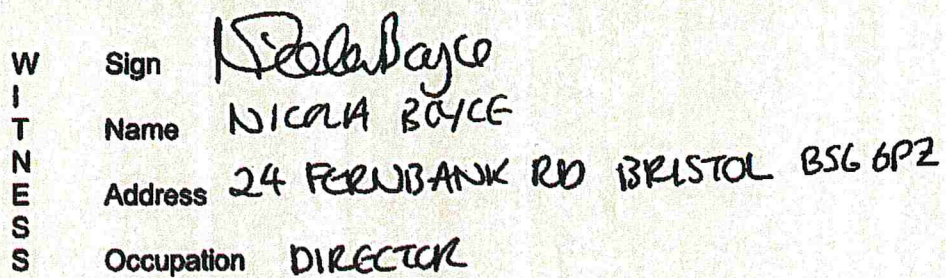 WITNESS
Sign Nicola Boyce
Name NICOLA BOYCE
Address 24 FERNBANK RD BRISTOL BS6 6PZ
Occupation DIRECTOR